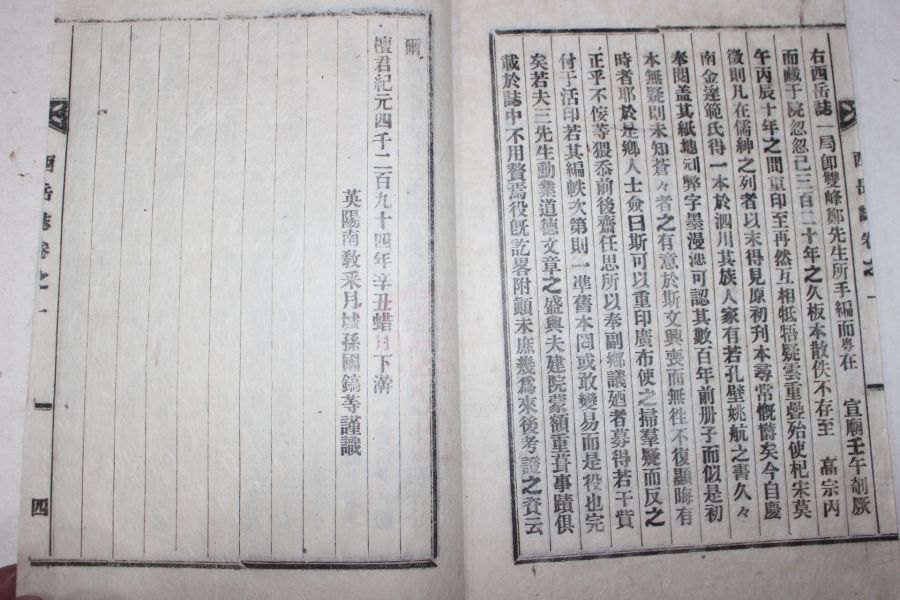 右西岳誌一局卽雙峰鄭先生所手編而粤在 宣廟壬午剞厥
而藏于院忽忽已三百二十年之久板本散佚不存至 高宗丙
午丙辰十年之間重印至再然互相牴牾疑雲重疊殆使杞宋莫
徵則凡在儒紳之列者以未得見原初刊本尋常慨欝矣今自慶
南金達範氏得一本於泗川其族人家有若孔壁姚航之書久々
奉閱盖其紙地刓弊字墨漫漶可認其數百年前册子而似是初
本無疑則未知蒼々者之有意於斯文興喪而無徃不復顯晦有
時者耶於是鄉人士僉曰斯可以重印廣布使之掃羣疑而反之
正乎不侫等猥忝前後齋任思所以奉副鄉議廼者募得若干貲
付于活印若其編帙次第則一準舊本罔或敢變易而是役也完
矣若夫三先生動業道德文章之盛與夫建院蒙額重葺事蹟俱
載於誌中不用贅焉役旣訖畧附顛末庶幾爲來後考證之資云
西岳誌卷之一
爾
檀君紀元四千二百九十四年辛丑蜡月下澣
英陽南敎釆月城孫國鎬等謹識
西岳誌卷之一
四